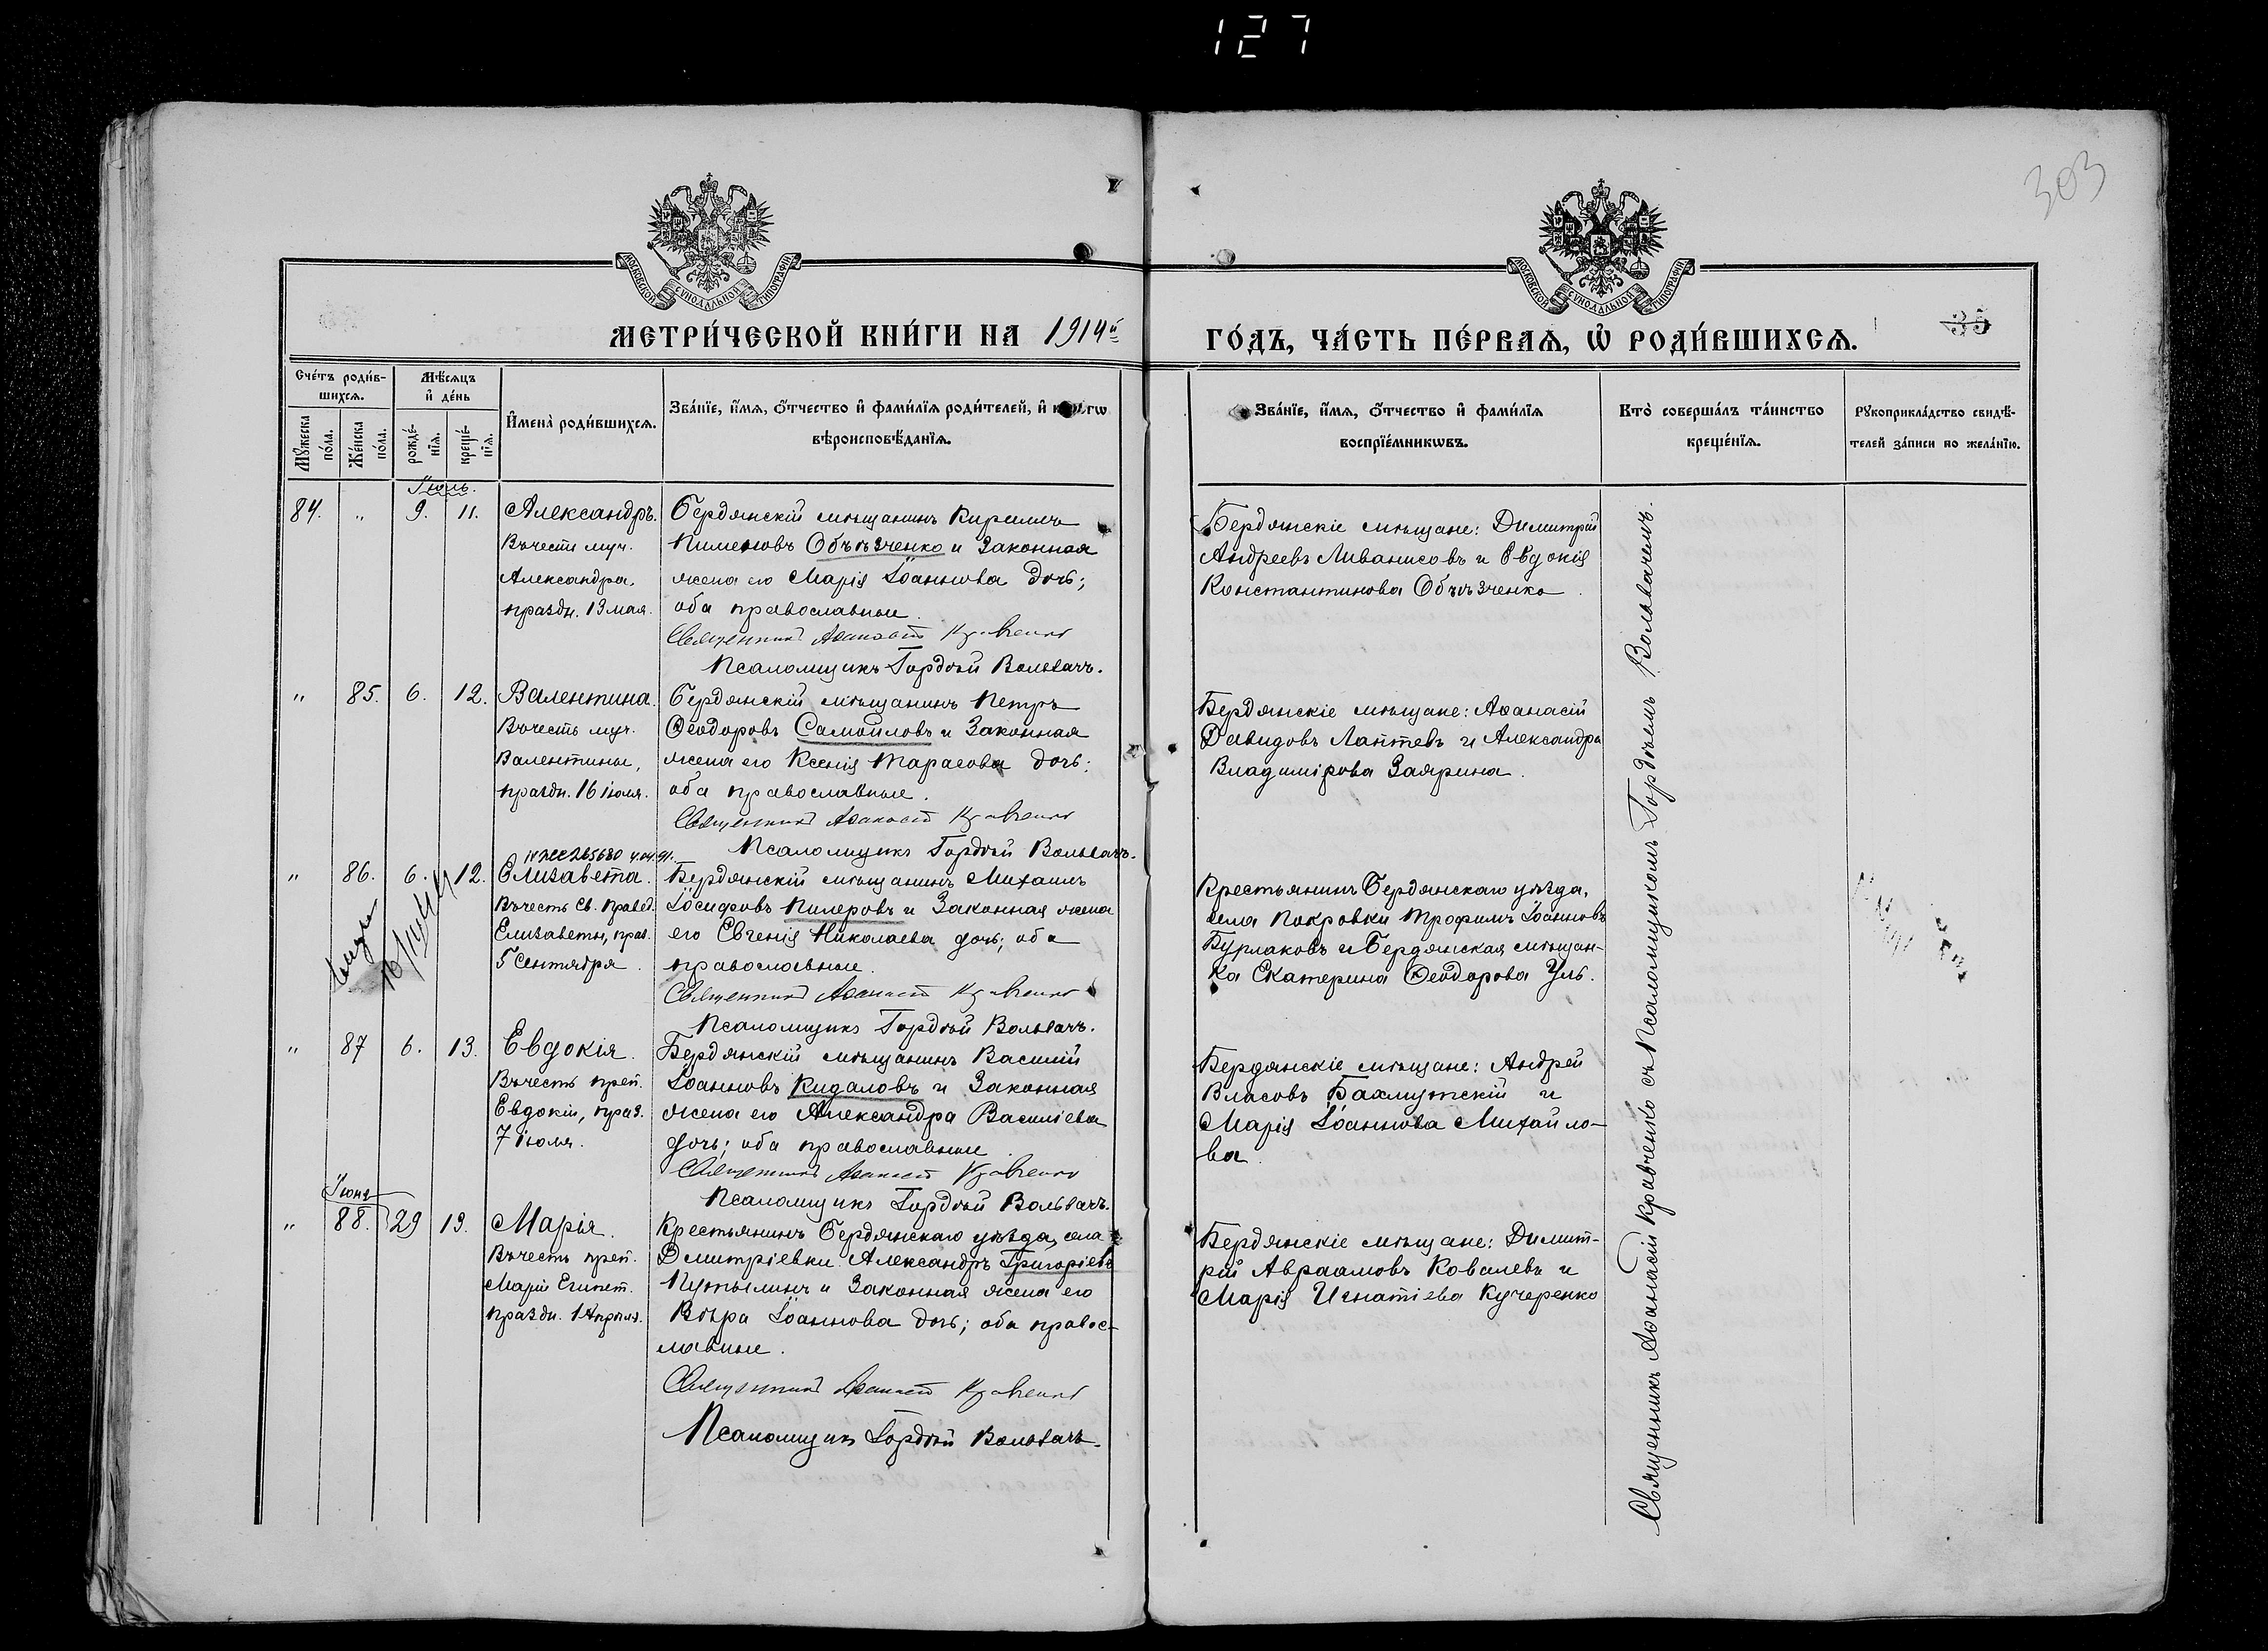 127
303
МОСКОВСКОЙ СѴНОДАЛЬНОЙ ТИПОГРАФІИ
МОСКОВСКОЙ СѴНОДАЛЬНОЙ ТИПОГРАФІИ
МЕТРИ́ЧЕСКОЙ КНИ́ГИ НА 1914й
ГО́ДЪ, ЧА́СТЬ ПЕ́РВАѦ, Ѡ҆ РОДИ́ВШИХСѦ.
35
Сче́тъ роди́в-
шихсѧ.
Мѣ́сѧцъ
и҆ де́нь
Мꙋ́жеска
по́ла.
Же́нска
по́ла.
рожде́-
нїѧ.
креще́-
нїѧ.
И҆мена̀ роди́вшихсѧ.
Зва́нїе, и҆́мѧ, ѻ҆́тчество и҆ фами́лїѧ роди́телей, и҆
вѣроисповѣ́данїѧ.
Зва́нїе, и҆́мѧ, ѻ҆́тчество и҆ фами́лїѧ
воспрїе́мникѡвъ.
Кто̀ соверша́лъ та́инство
креще́нїѧ.
Рꙋкоприкла́дство свидѣ́-
телей за́писи по жела́нїю.
Іюль.
84. „ 9. 11. Александръ.
Въ честь муч.
Александра,
праздн. 13 мая.
Бердянскій мѣщанинъ Кириллъ
Пименовъ Объѣзченко и законная
жена его Марія Іоаннова дочь;
оба православные.
Священникъ Аѳанасій Кравченко
Псаломщикъ Гордѣй Вольвачъ.
Бердянскіе мѣщане: Димитрій
Андреевъ Ливанисовъ и Евдокія
Константинова Объѣзченко
„ 85. 6. 12. Валентина.
Въ честь муч.
Валентины,
праздн. 16 іюля.
Бердянскій мѣщанинъ Петръ
Ѳеодоровъ Самойловъ и законная
жена его Ксенія Тарасова дочь;
оба православные.
Священникъ Аѳанасій Кравченко
Псаломщикъ Гордѣй Вольвачъ.
Бердянскіе мѣщане: Аѳанасій
Давидовъ Лаптевъ и Александра
Владимірова Заярина.
265680 4.04.91.
„ 86. 6. 12. Елизавета.
Въ честь св. правед.
Елизаветы, праз.
5 сентября.
Бердянскій мѣщанинъ Михаилъ
Іосифовъ Пилеровъ и законная жена
его Евгенія Николаева дочь; оба
православные.
Священникъ Аѳанасій Кравченко
Псаломщикъ Гордѣй Вольвачъ.
Крестьянинъ Бердянскаго уѣзда,
села Покровки Трофимъ Іоанновъ
Бурлаковъ и Бердянская мѣщан-
ка Екатерина Ѳеодорова Уль.
„ 87 6. 13. Евдокія.
Въ честь преп.
Евдокіи, праз.
7 іюля.
Бердянскій мѣщанинъ Василій
Іоанновъ Кидаловъ и законная
жена его Александра Василіева
дочь; оба православные.
Священникъ Аѳанасій Кравченко
Псаломщикъ Гордѣй Вольвачъ.
Бердянскіе мѣщане: Андрей
Власовъ Бахмутскій и
Марія Іоаннова Михайло-
ва.
Іюня
„ 88. 29 13. Марія.
Въ честь преп.
Маріи Египет.
праздн. 1 Апрѣля.
Крестьянинъ Бердянскаго уѣзда, села
Дмитріевки Александръ Григоріевъ
Путылинъ и законная жена его
Вѣра Іоаннова дочь; оба правос-
лавные.
Священникъ Аѳанасій Кравченко
Псаломщикъ Гордѣй Вольвачъ.
Бердянскіе мѣщане: Димит-
рій Авраамовъ Ковалевъ и
Марія Игнатіева Кучеренко
Священникъ Аѳанасій Кравченко съ Псаломщикомъ Гордѣемъ Волвачемъ.